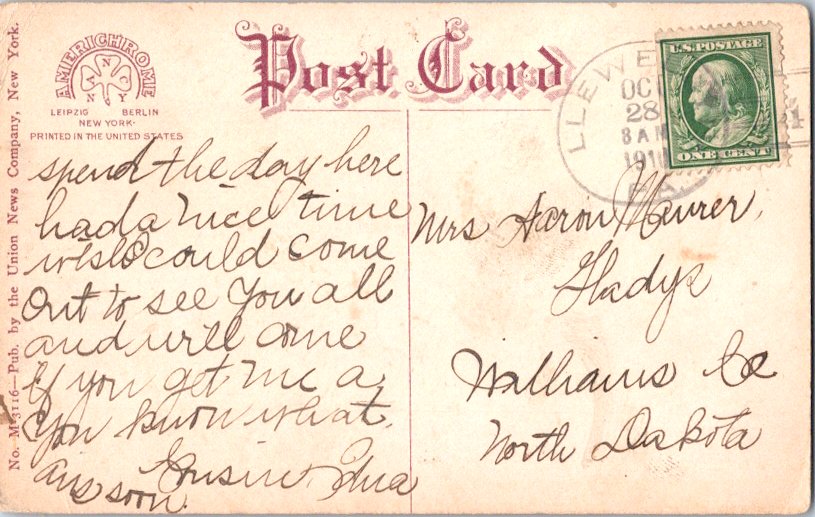 No. M-3116—Pub. by the Union News Company, New York.
AMERICHROME
ANCNY
LEIPZIG BERLIN
NEW YORK
PRINTED IN THE UNITED STATES
Post Card
LLEWE
OCT
28
8 AM
191
PA.
U.S. POSTAGE
ONE CENT
spend the day here
had a nice time
wish I could come
out to see you all
and will come
if you get me a
you know what.
Cousin Edna
ans soon.
Mrs Aaron Maurer,
Gladys
Williams Co
North Dakota